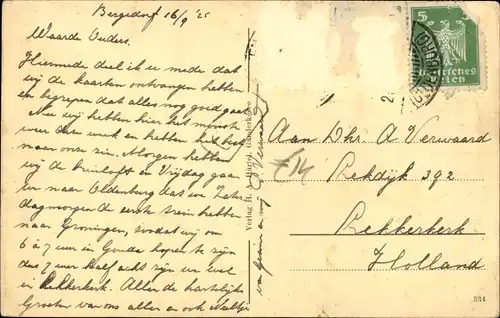 Bergedorf 16/9 '25
Waarde Ouders.
Hiermede deel ik u mede dat
wij de kaarten ontvangen hebben
en begrepen dat alles nog goed gaat
Nu wij hebben hier het mooiste
weer en hebben het
maar onze zin. Morgen hebben
wij de bruiloft en Vrijdag gaan
we naar Oldenburg dat we Zater
dagmorgen de eerste trein hebben
naar Groningen, zoodat wij om
6 à 7 uur in Gouda hopen te zijn
dus 7 uur half acht zijn we wel
in Lekkerkerk. Allen de hartelijke
Groeten van ons allen en ook
van
Verlag H.
5
Deutsches
Reich
Aan Dhr A Verwaard
Lekdijk 392
Lekkerkerk
Holland
£14
534